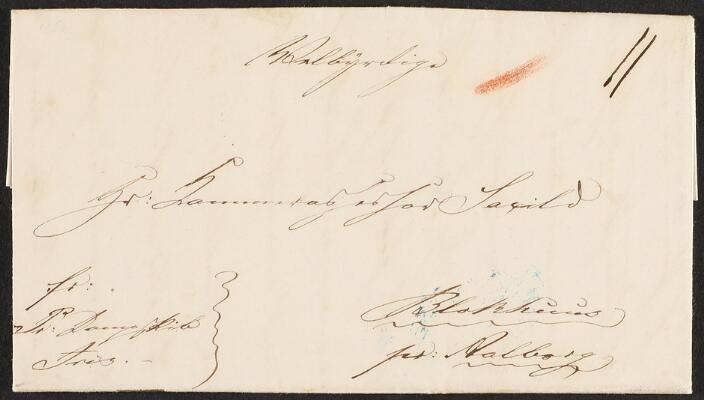 Velbyrdige
Hr: Kammerassessor Saxild
fr:
Pr: Dampskib
Iris.
Blokhuus
pr: Aalborg